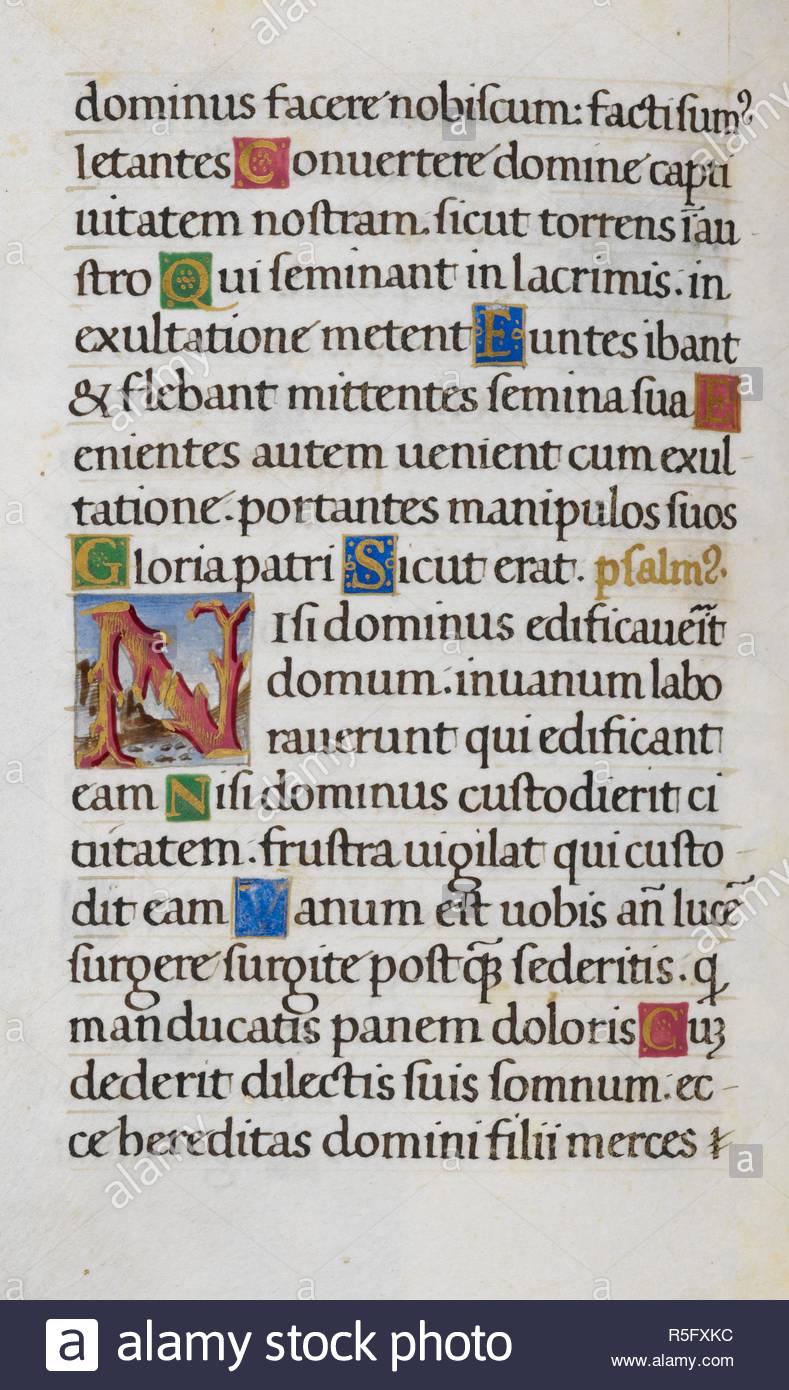 dominus facere nobiſcum: facti ſumꝰ
letantes Conuertere domine capti
uitatem noſtram. ſicut torrens ī au
ſtro Qui ſeminant in lacrimis. in
exultatione metent Euntes ibant
& flebant mittentes ſemina ſua E
enientes autem uenient cum exul
tatione. portantes manipulos ſuos
Gloria patri Sicut erat. pſalmꝰ.
Niſi dominus edificaueīt
domum. inuanum labo
rauerunt qui edificant
eam Niſi dominus cuſtodierit ci
uitatem. fruſtra uigilat qui cuſto
dit eam Vanum eſt uobis añ lucē
ſurgere ſurgite poſtꝙ̄ ſederitis. q
manducatis panem doloris Cuꝫ
dederit dilectis ſuis ſomnum. ec
ce hereditas domini filii merces
a alamy stock photo
R5FXKC
www.alamy.com